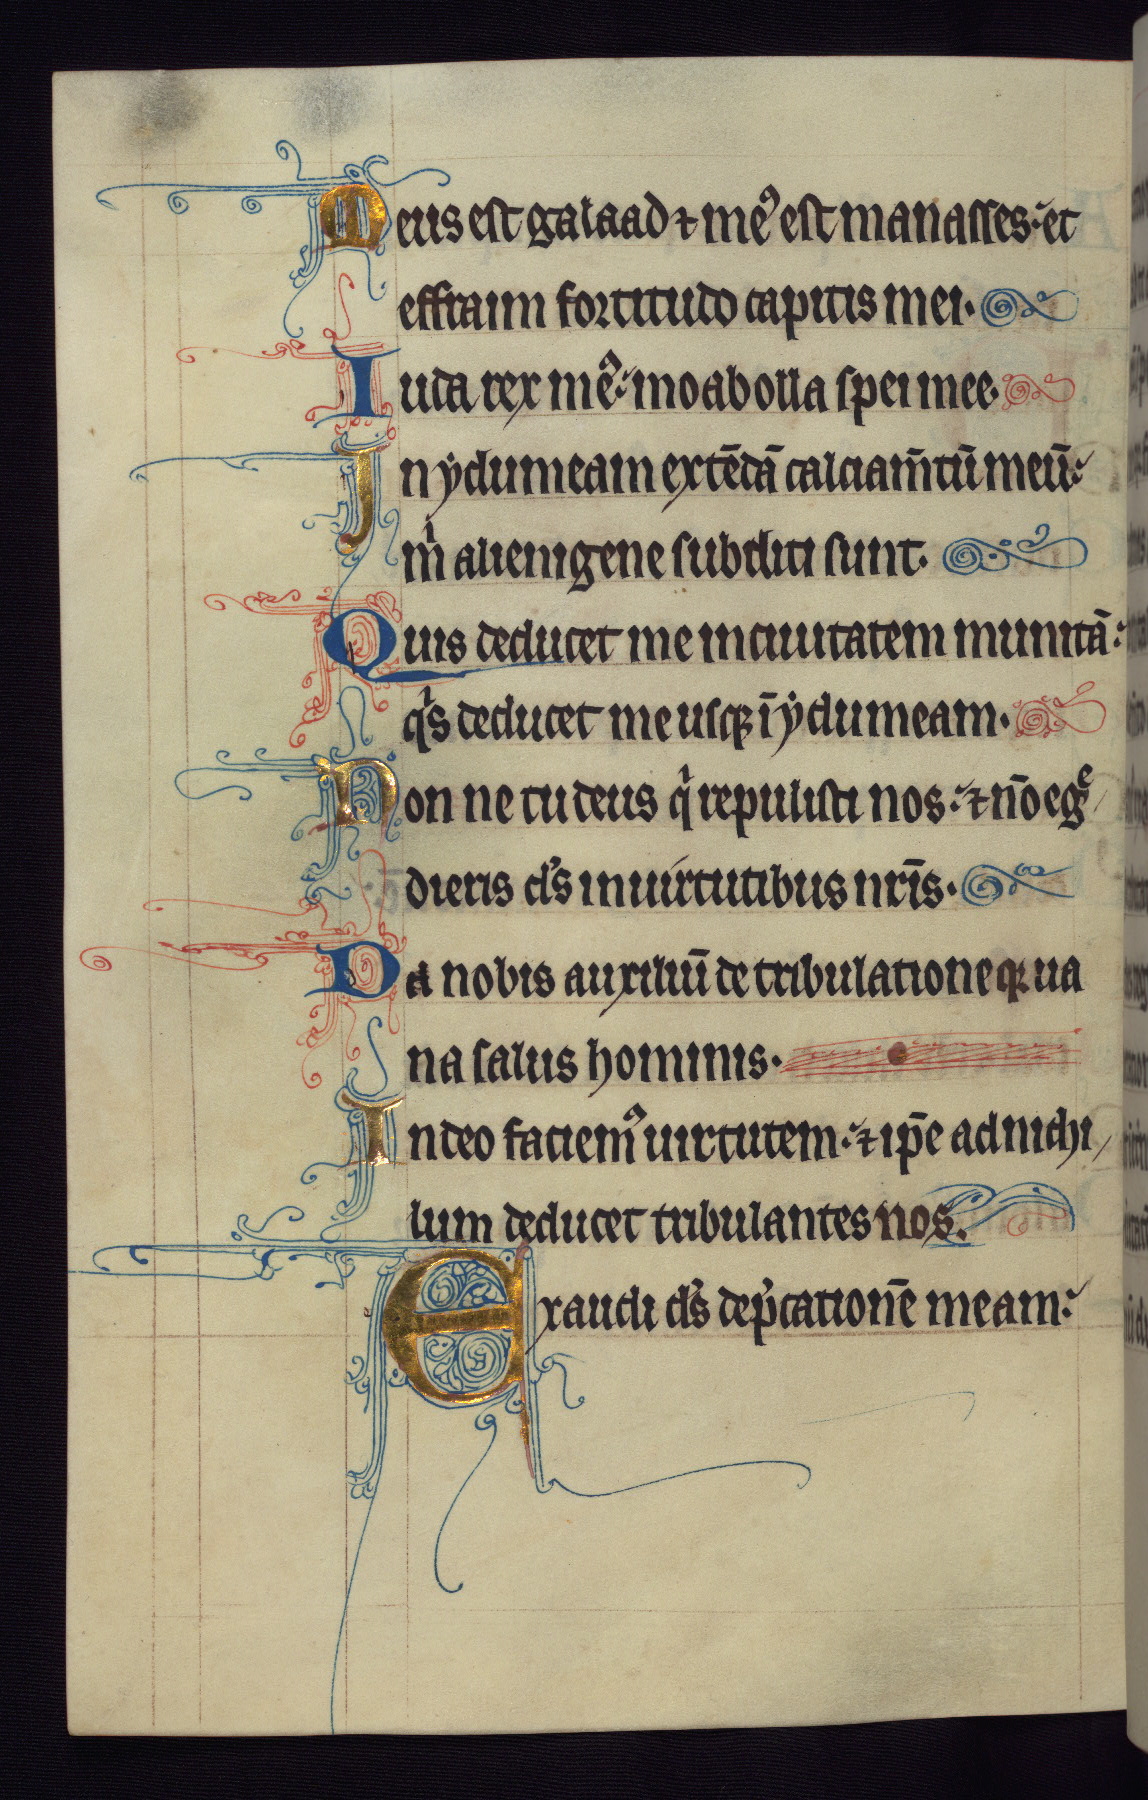 Meus est galaad ⁊ meꝰ est manasses: et
effraim fortitudo capitis mei.
Iuda rex meꝰ: moab olla spei mee.
In ydumeam extēdā calciam̄tū meū:
mͥ alienigene subditi sunt.
Quis deducet me in ciuitatem munitā:
qͥs deducet me usqꝫ ī ydumeam.
Non ne tu deus qͥ repulisti nos: ⁊ nō egͤ
dieris ds̄ in uirtutibus nr̄is.
Da nobis auxiliū de tribulatione qꝫ ua
na salus hominis.
In deo faciemꝰ uirtutem: ⁊ ip̄e ad nichi
lum deducet tribulantes nos.
Exaudi ds̄ dep̄cationē meam: